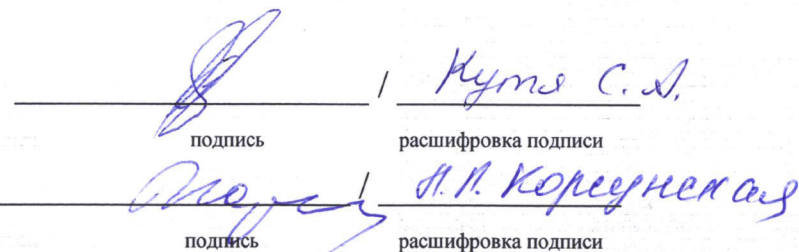 / Кутя С. А.
подпись расшифровка подписи
/ Н.П. Корсунская
подпись расшифровка подписи